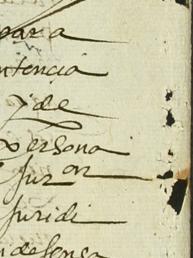 para
ntencia
y de
persona
Jur on
juridi
n defensa